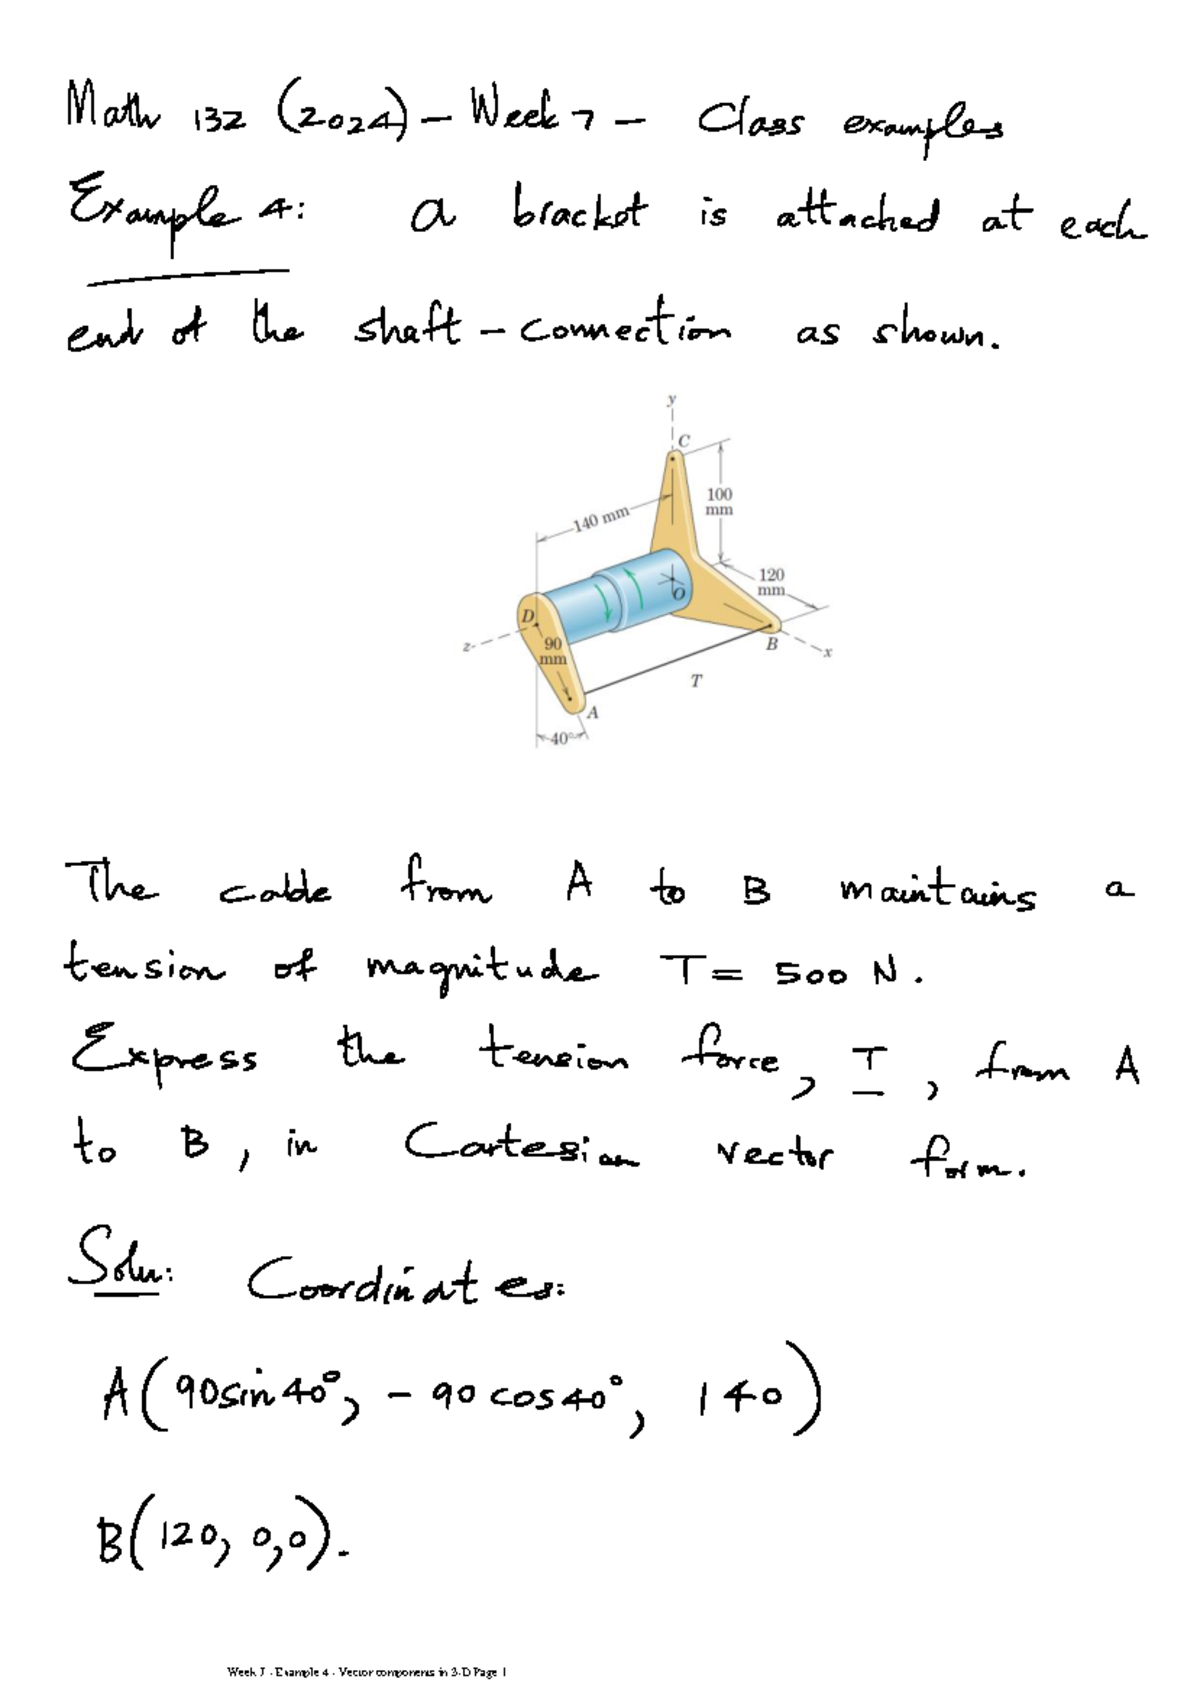 Math 132 (2024) - Week 7 - Class examples
Example 4: a bracket is attached at each
end of the shaft - connection as shown.
y
C
100
mm
140 mm
120
mm
O
D
z
90
mm
B
x
T
A
40°
The cable from A to B maintains a
tension of magnitude T = 500 N.
Express the tension force, T, from A
to B, in Cartesian vector form.
Soln: Coordinates:
A(90sin40°, - 90 cos40°, 140)
B(120, 0,0).
Week 7 - Example 4 - Vector components in 3-D Page 1